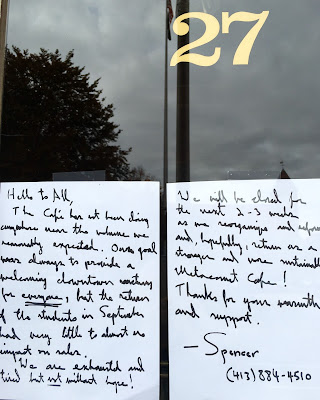 27
Hello to All,
The Café has not been doing
anywhere near the volume we
necessarily expected. Our goal
was always to provide a
welcoming downtown
for everyone, but the return
of the students in September
had very little to almost no
impact on sales.
We are exhausted and
tired but not without hope!
We will be closed for
the next 2-3 weeks
as we reorganize and
and, hopefully, return as a
stronger and more sustainable
Cafe!
Thanks for your warmth
and support.
— Spencer
(413) 884-4510